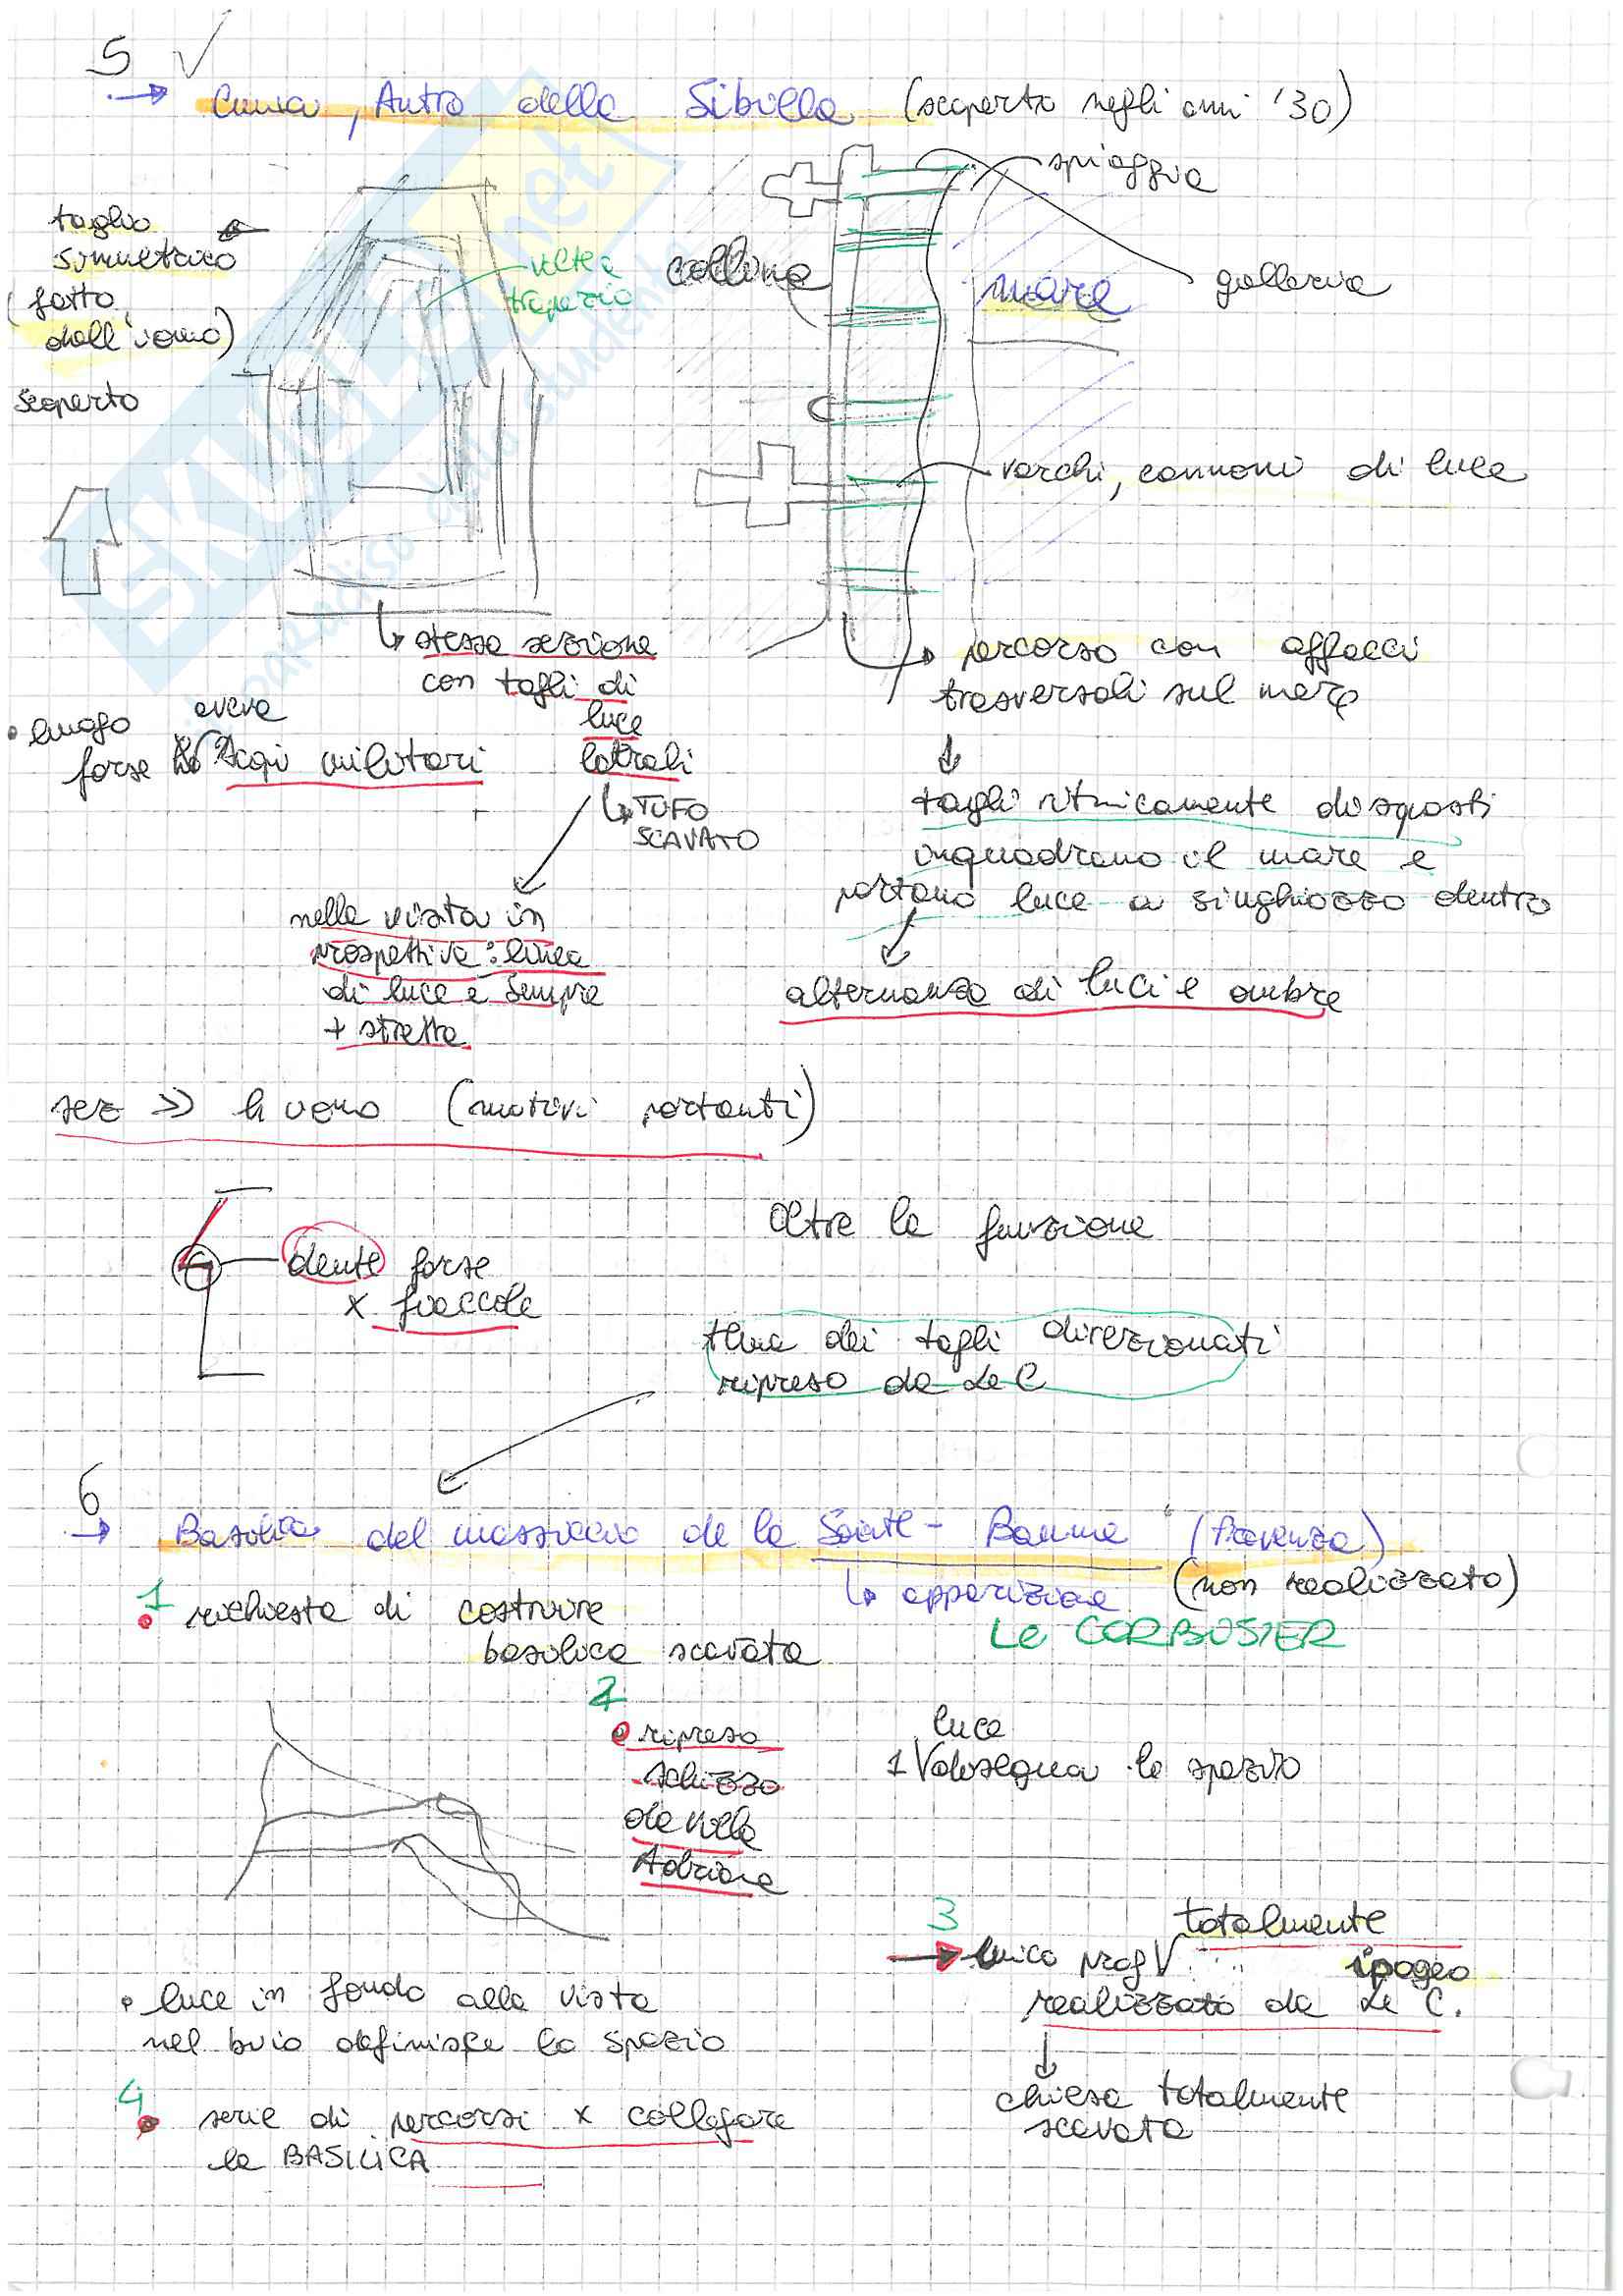 5 √
→ Cuma, Antro della Sibilla (scoperto negli anni '30)
spiaggia
taglio
simmetrico
(fatto
dall'uomo)
scoperto
volta a
trapezio
collina
mare
galleria
varchi, cannoni di luce
stessa sezione
con tagli di
luce
laterali
TUFO
SCAVATO
percorso con affacci
trasversali sul mare
• luogo
forse aveva scopi militari
tagli ritmicamente disposti
inquadrano il mare e
portano luce a singhiozzo dentro
nella vista in
prospettiva: linea
di luce è sempre
+ stretta
alternanza di luci e ombre
sez >> h uomo (motivi portanti)
dente forse
x fiaccole
Oltre la funzione
tema dei tagli direzionati
ripreso da Le C
6
→ Basilica del massiccio de la Sainte-Baume (Provenza)
↳ apparizione (non realizzato)
Le CORBUSIER
1
• richiesta di costruire
basilica scavata
2
• ripreso
schizzo
da villa
Adriana
luce
1 Valosequa lo spazio
3
→ unico prog totalmente
ipogeo
realizzato da Le C.
chiesa totalmente
scavata
• luce in fondo alla vista
nel buio definisce lo spazio
4
• serie di percorsi x collegare
la BASILICA
SKUOLA.net